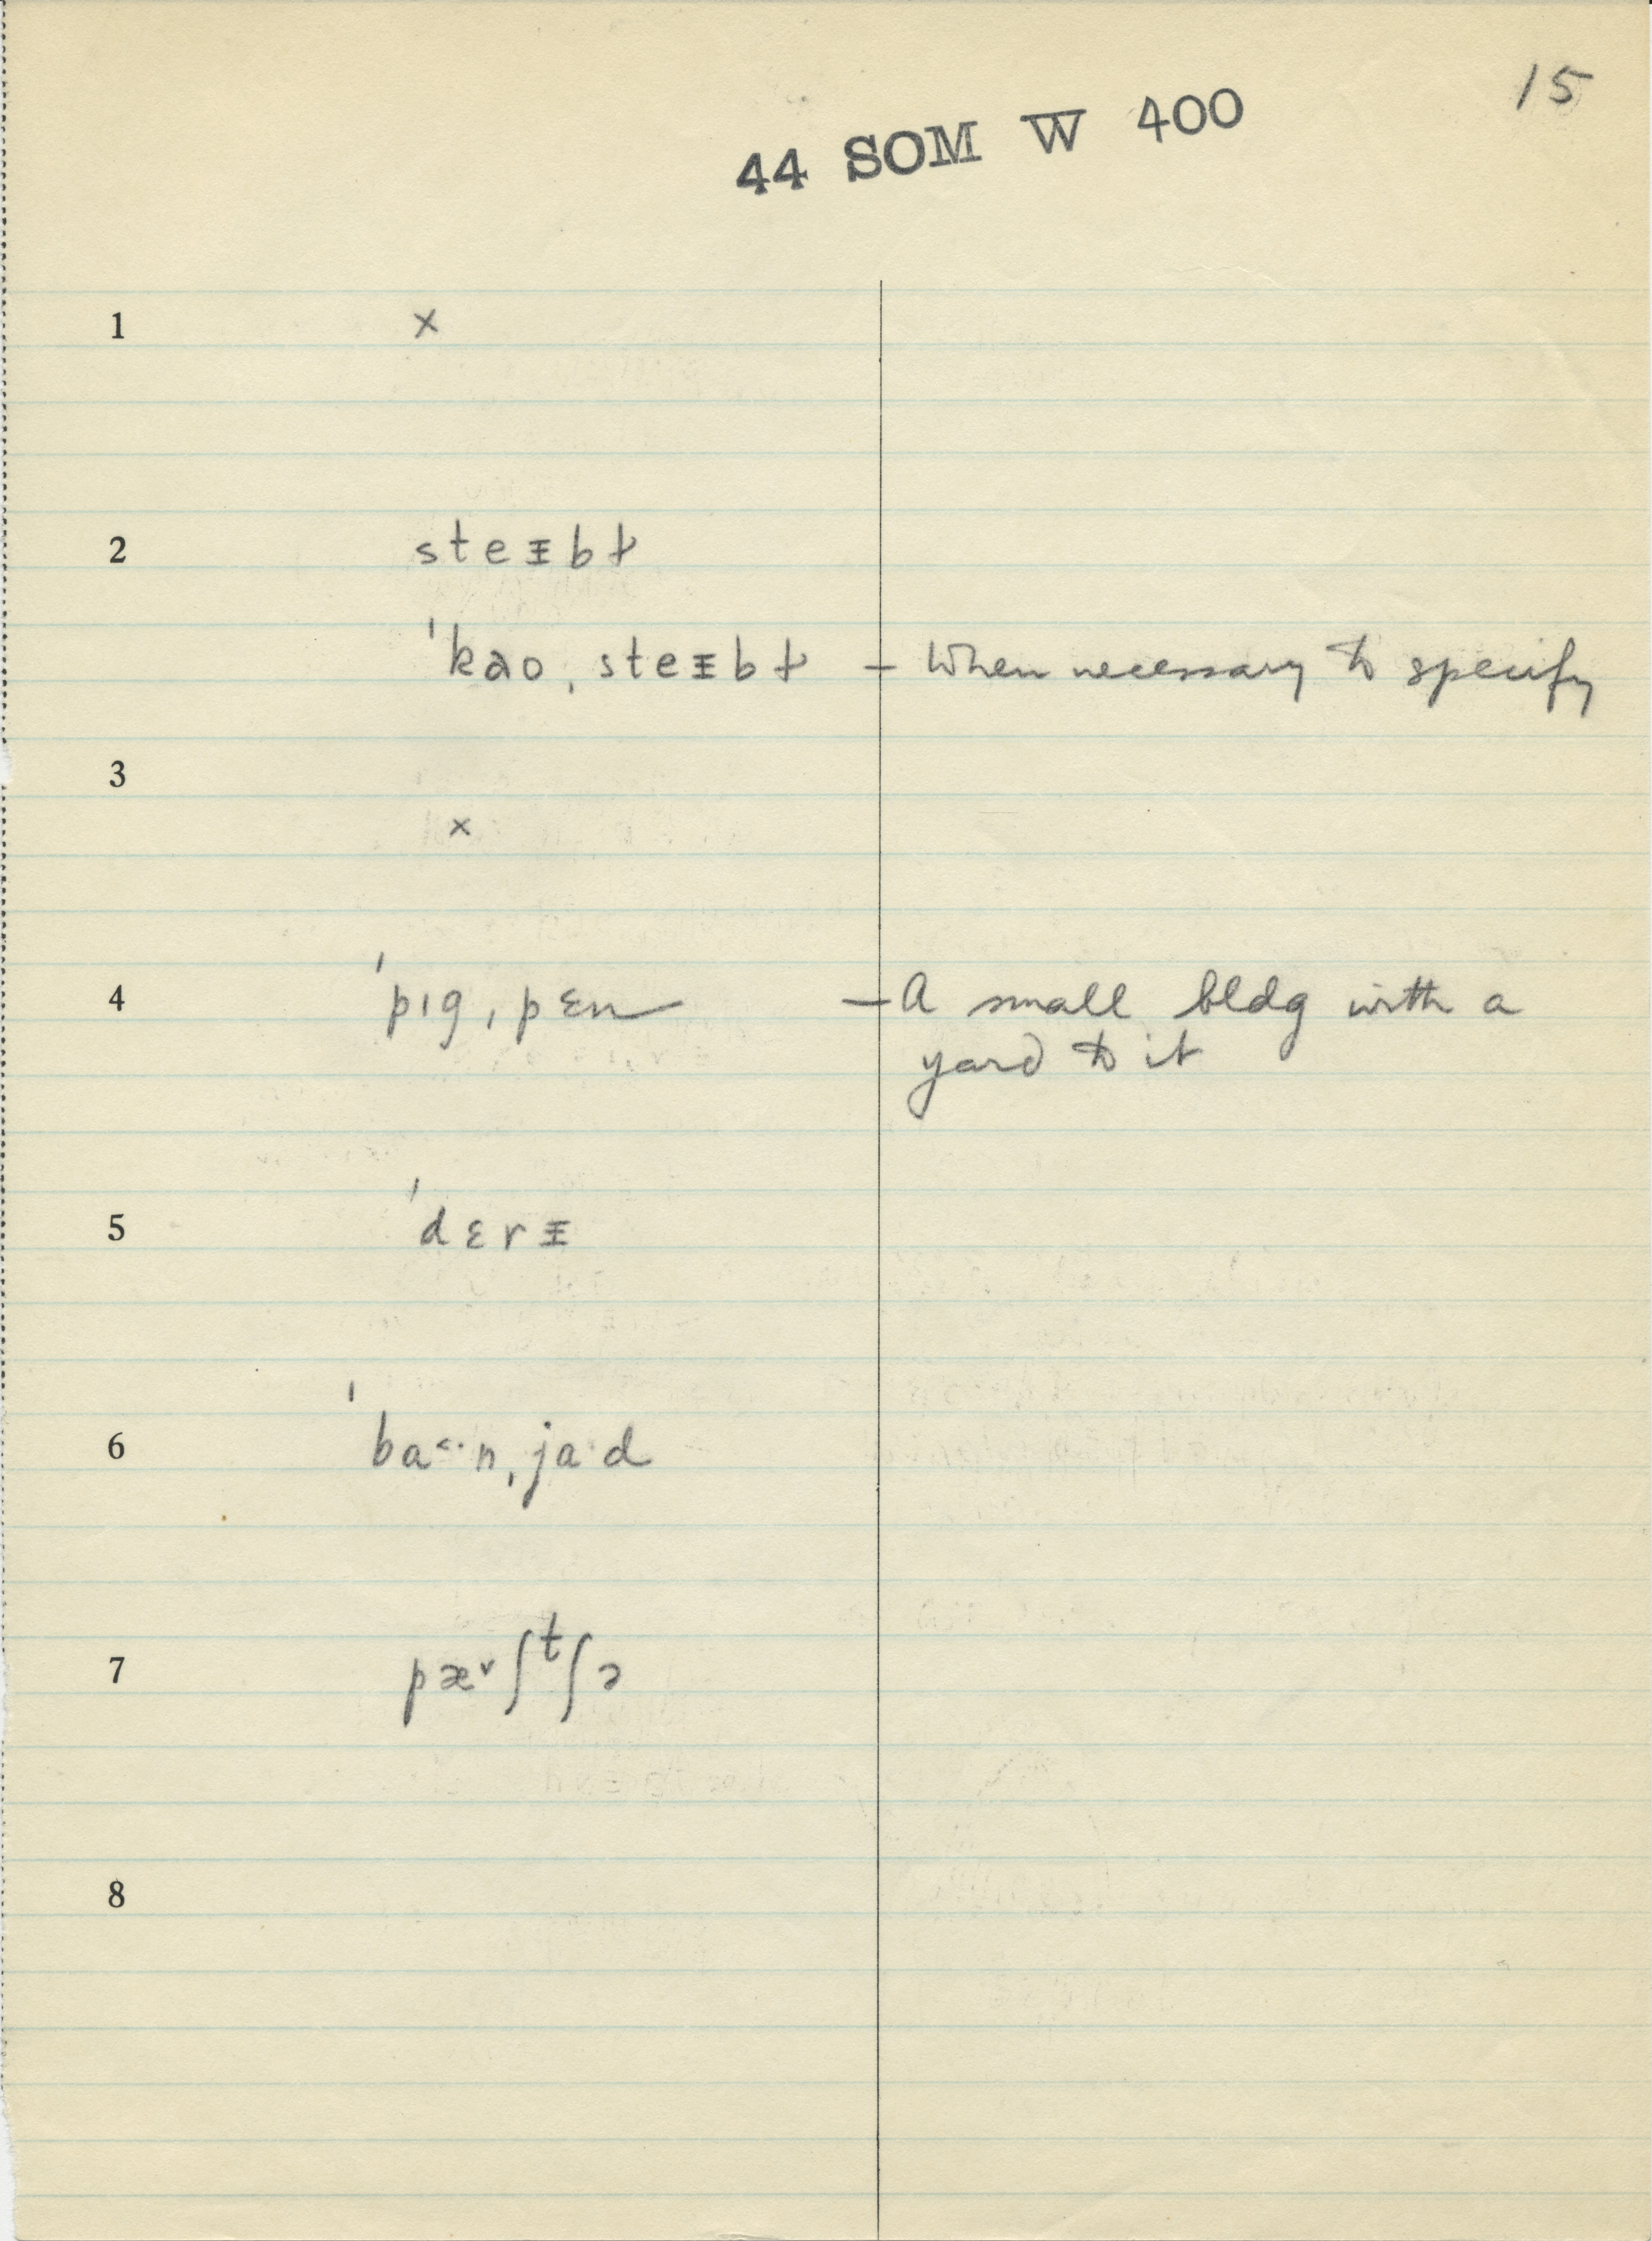 15
44 SOM W 400
1 ×
2 steᵻbɫ
ˈkaoˌsteᵻbɫ – When necessary to specify
3
×
4 ˈpɪgˌpɛn – A small bldg with a
yard to it
5 ˈdɛrᵻ
6 ˈba˂·nˌja·d
7 pæ˅ʃᵗʃɔ
8